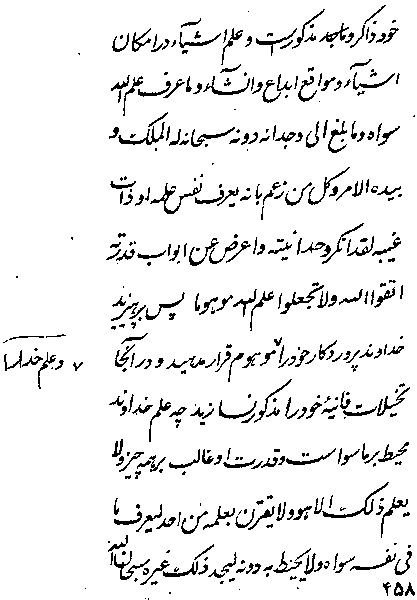 خود ذاکر و ماجد مذکور است و علم اشیآء در امکان
اشیآء و مواقع ابداع وانشآء و ما عرف علم الله
سواه و ما بلغ الی وجدانه دونه سبحانه له الملک و
بیده الامر و کل من زعم بانه یعرف نفس علمه او ذات
غیبه لقد انکر وحدانیته و اعرض عن ابواب قدرته
اتقوا الله و لا تجعلوا علم الله موهوما پس بپرهیزید
خداوند پروردکار خود را ٧ موهوم قرار مدهید و در آنجا
٧ و علم خدا را
تخیلات فانیهٔ خود را مذکور نسازید چه علم خداوند
محیط بر ماسوا است و قدرت او غالب بر همه چیز و لا
یعلم ذلک الا هو و لا یقترن بعلمه من احد لیعرف ما
فی نفسه سواه و لا یحیط به دونه لیجد ذلک غیره سبحان الله
۴۵۸